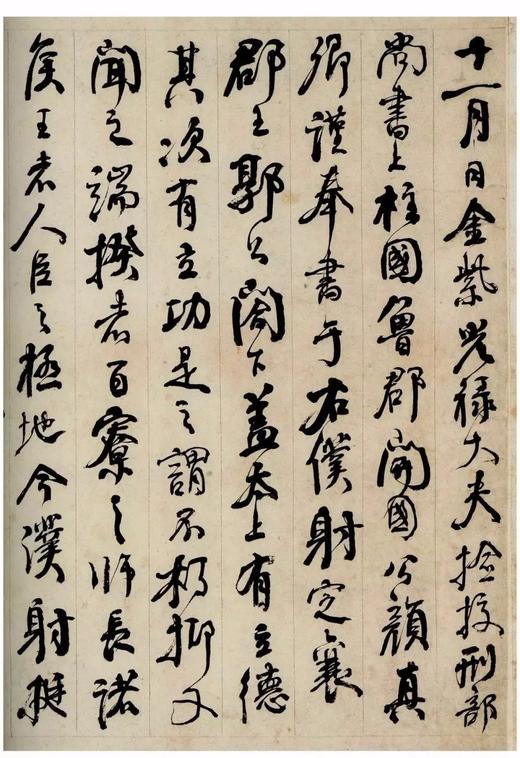 十一月日金紫光祿大夫撿挍刑部
尚書上柱國魯郡開國公顏真
卿謹奉書于右僕射定襄
郡王郭公閤下盖太上有立德
其次有立功是之謂不朽抑又
聞之端揆者百寮之師長諸
侯王者人臣之極地今僕射挺